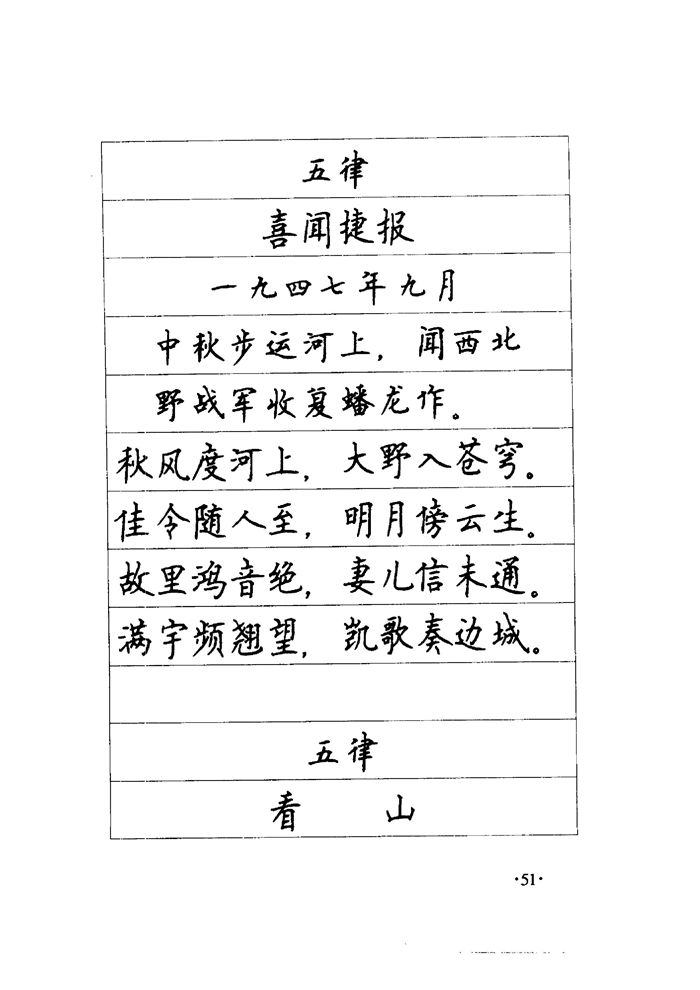 五律
喜闻捷报
一九四七年九月
中秋步运河上，闻西北
野战军收复蟠龙作。
秋风度河上，大野入苍穹。
佳令随人至，明月傍云生。
故里鸿音绝，妻儿信未通。
满宇频翘望，凯歌奏边城。
五律
看 山
·51·